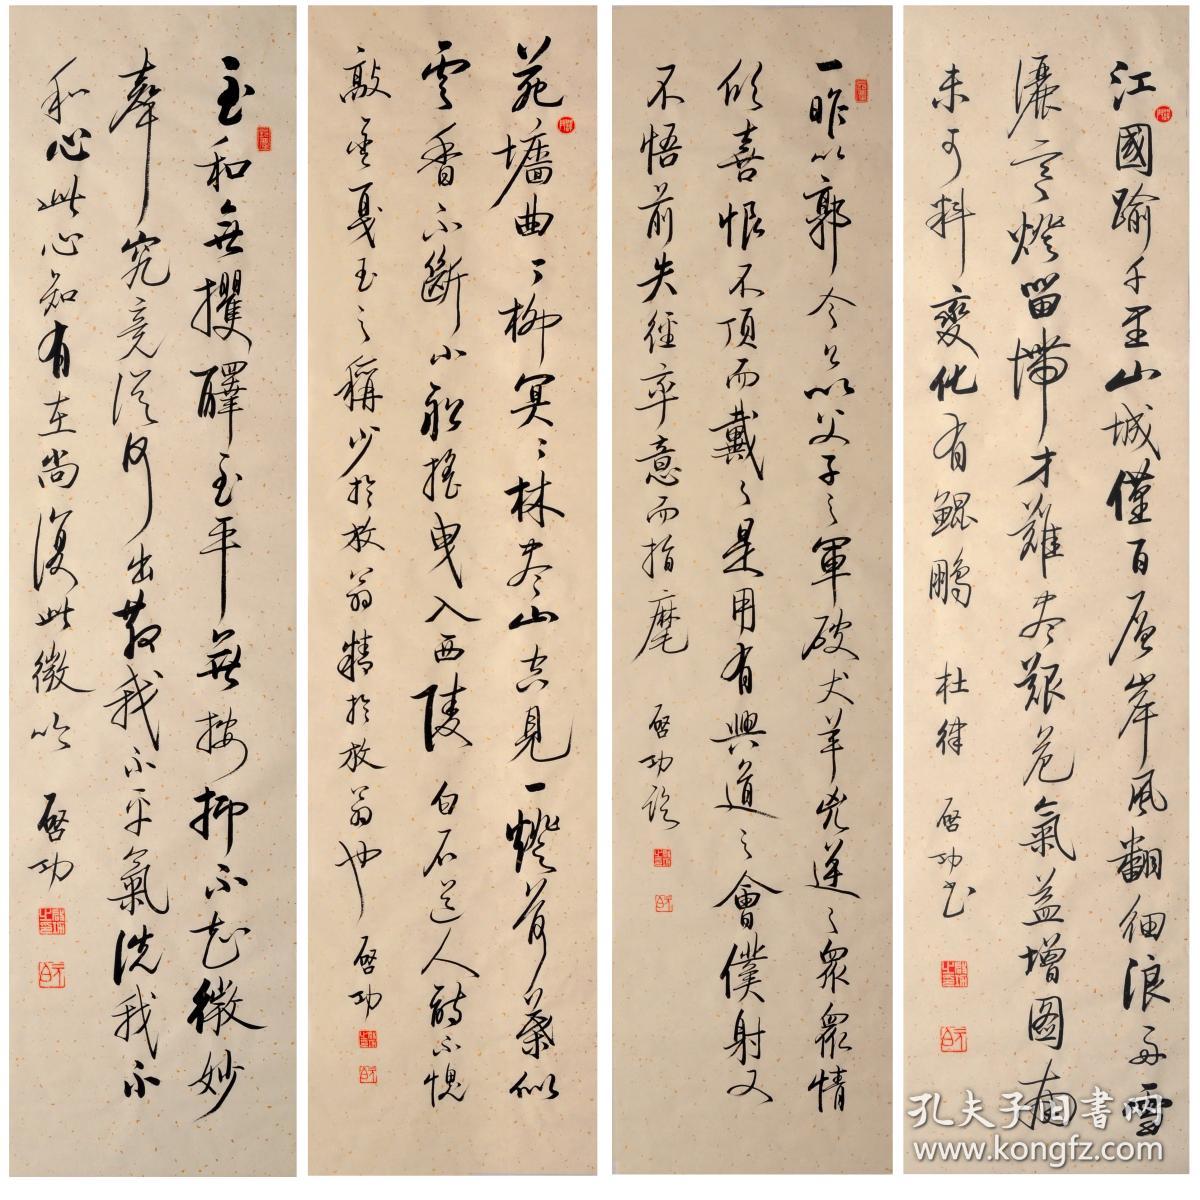 江國踰千里山城僅百層岸風翻細浪舟雪
灑寒燈留滯才難盡艱危氣益增圖南
未可料變化有鯤鵬 杜律 啓功書
一昨以郭令公以父子之軍破犬羊兇逆之眾眾情
欣喜恨不頂而戴之是用有興道之會僕射又
不悟前失徑率意而指麾 啓功臨
苑墻曲曲柳冥冥林盡山空見一燈荷葉似
雲香不斷小船搖曳入西陵 白石道人詩不愧
敲金戛玉之稱少於放翁精於放翁也 啓功
至和無攫醳至平無按抑不知微妙
聲究竟從何出散我不平氣洗我不
和心此心知有在尚復此微吟 啓功
孔夫子旧書网
www.kongfz.com